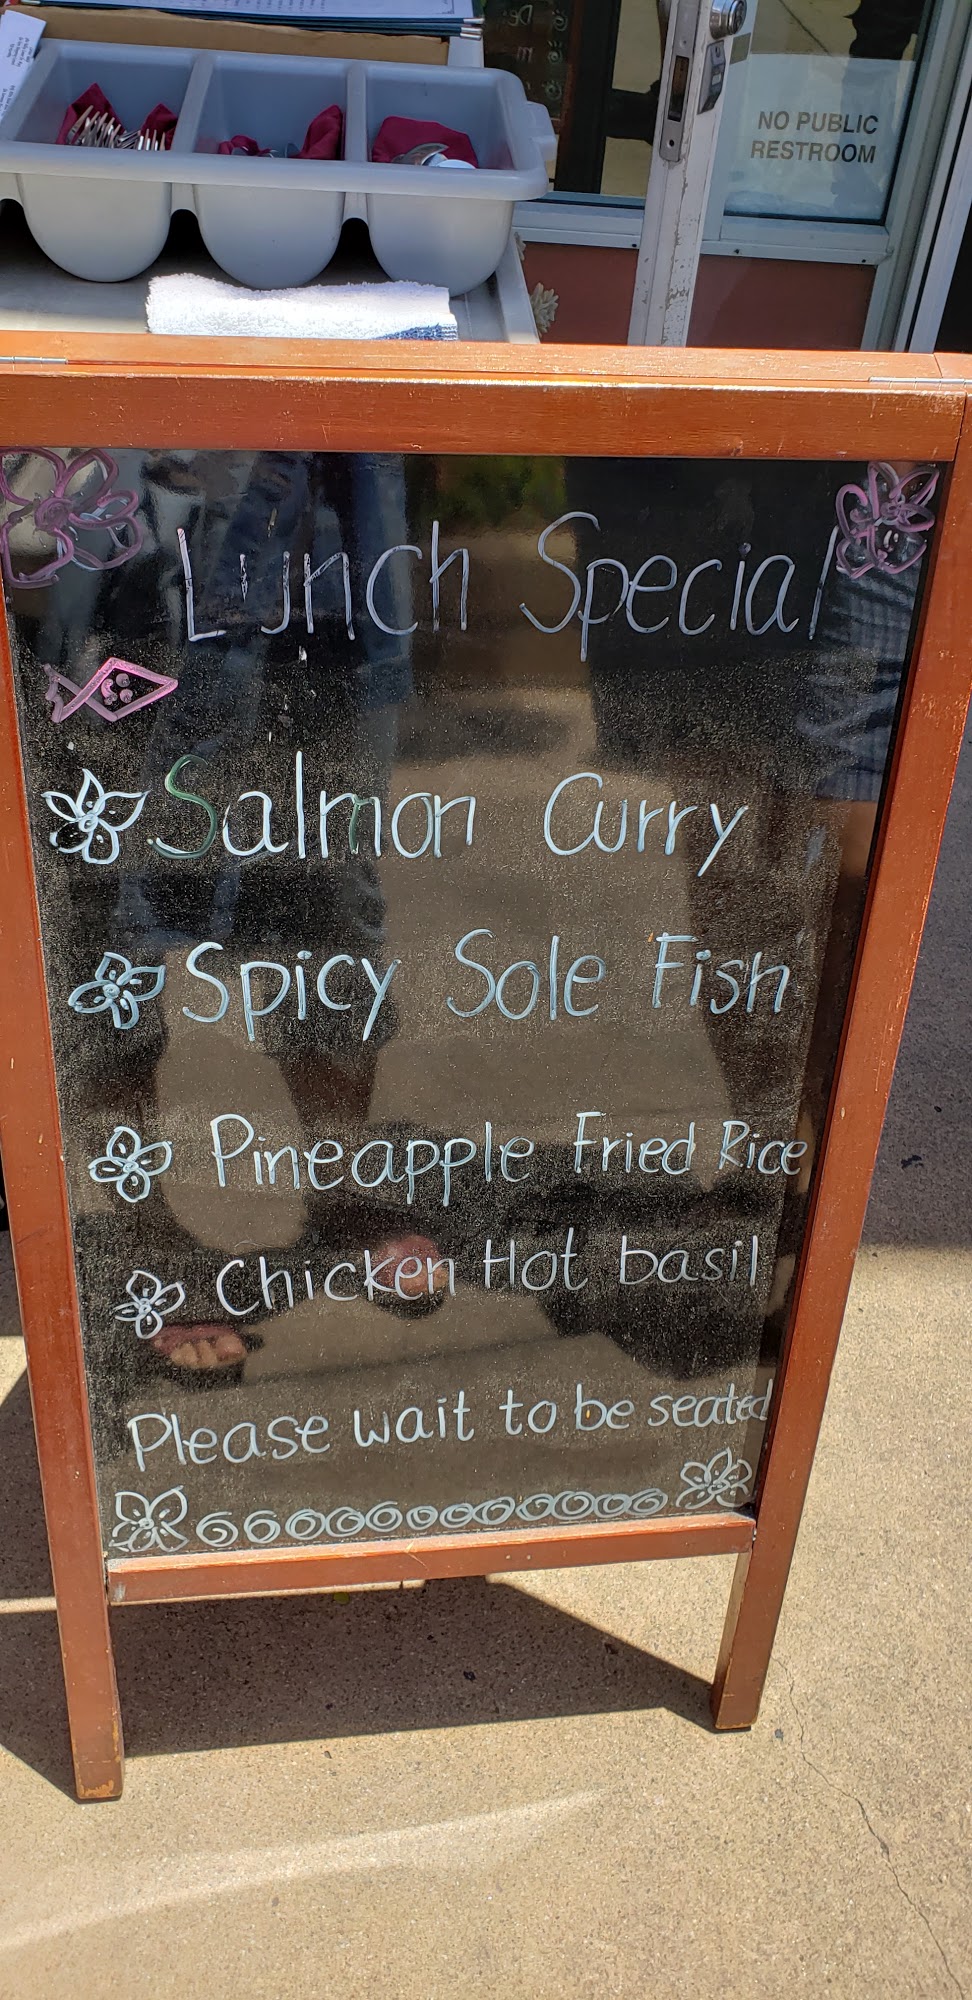 NO PUBLIC
RESTROOM
Lunch Special
Salmon Curry
Spicy Sole Fish
Pineapple Fried Rice
Chicken Hot basil
Please wait to be seated